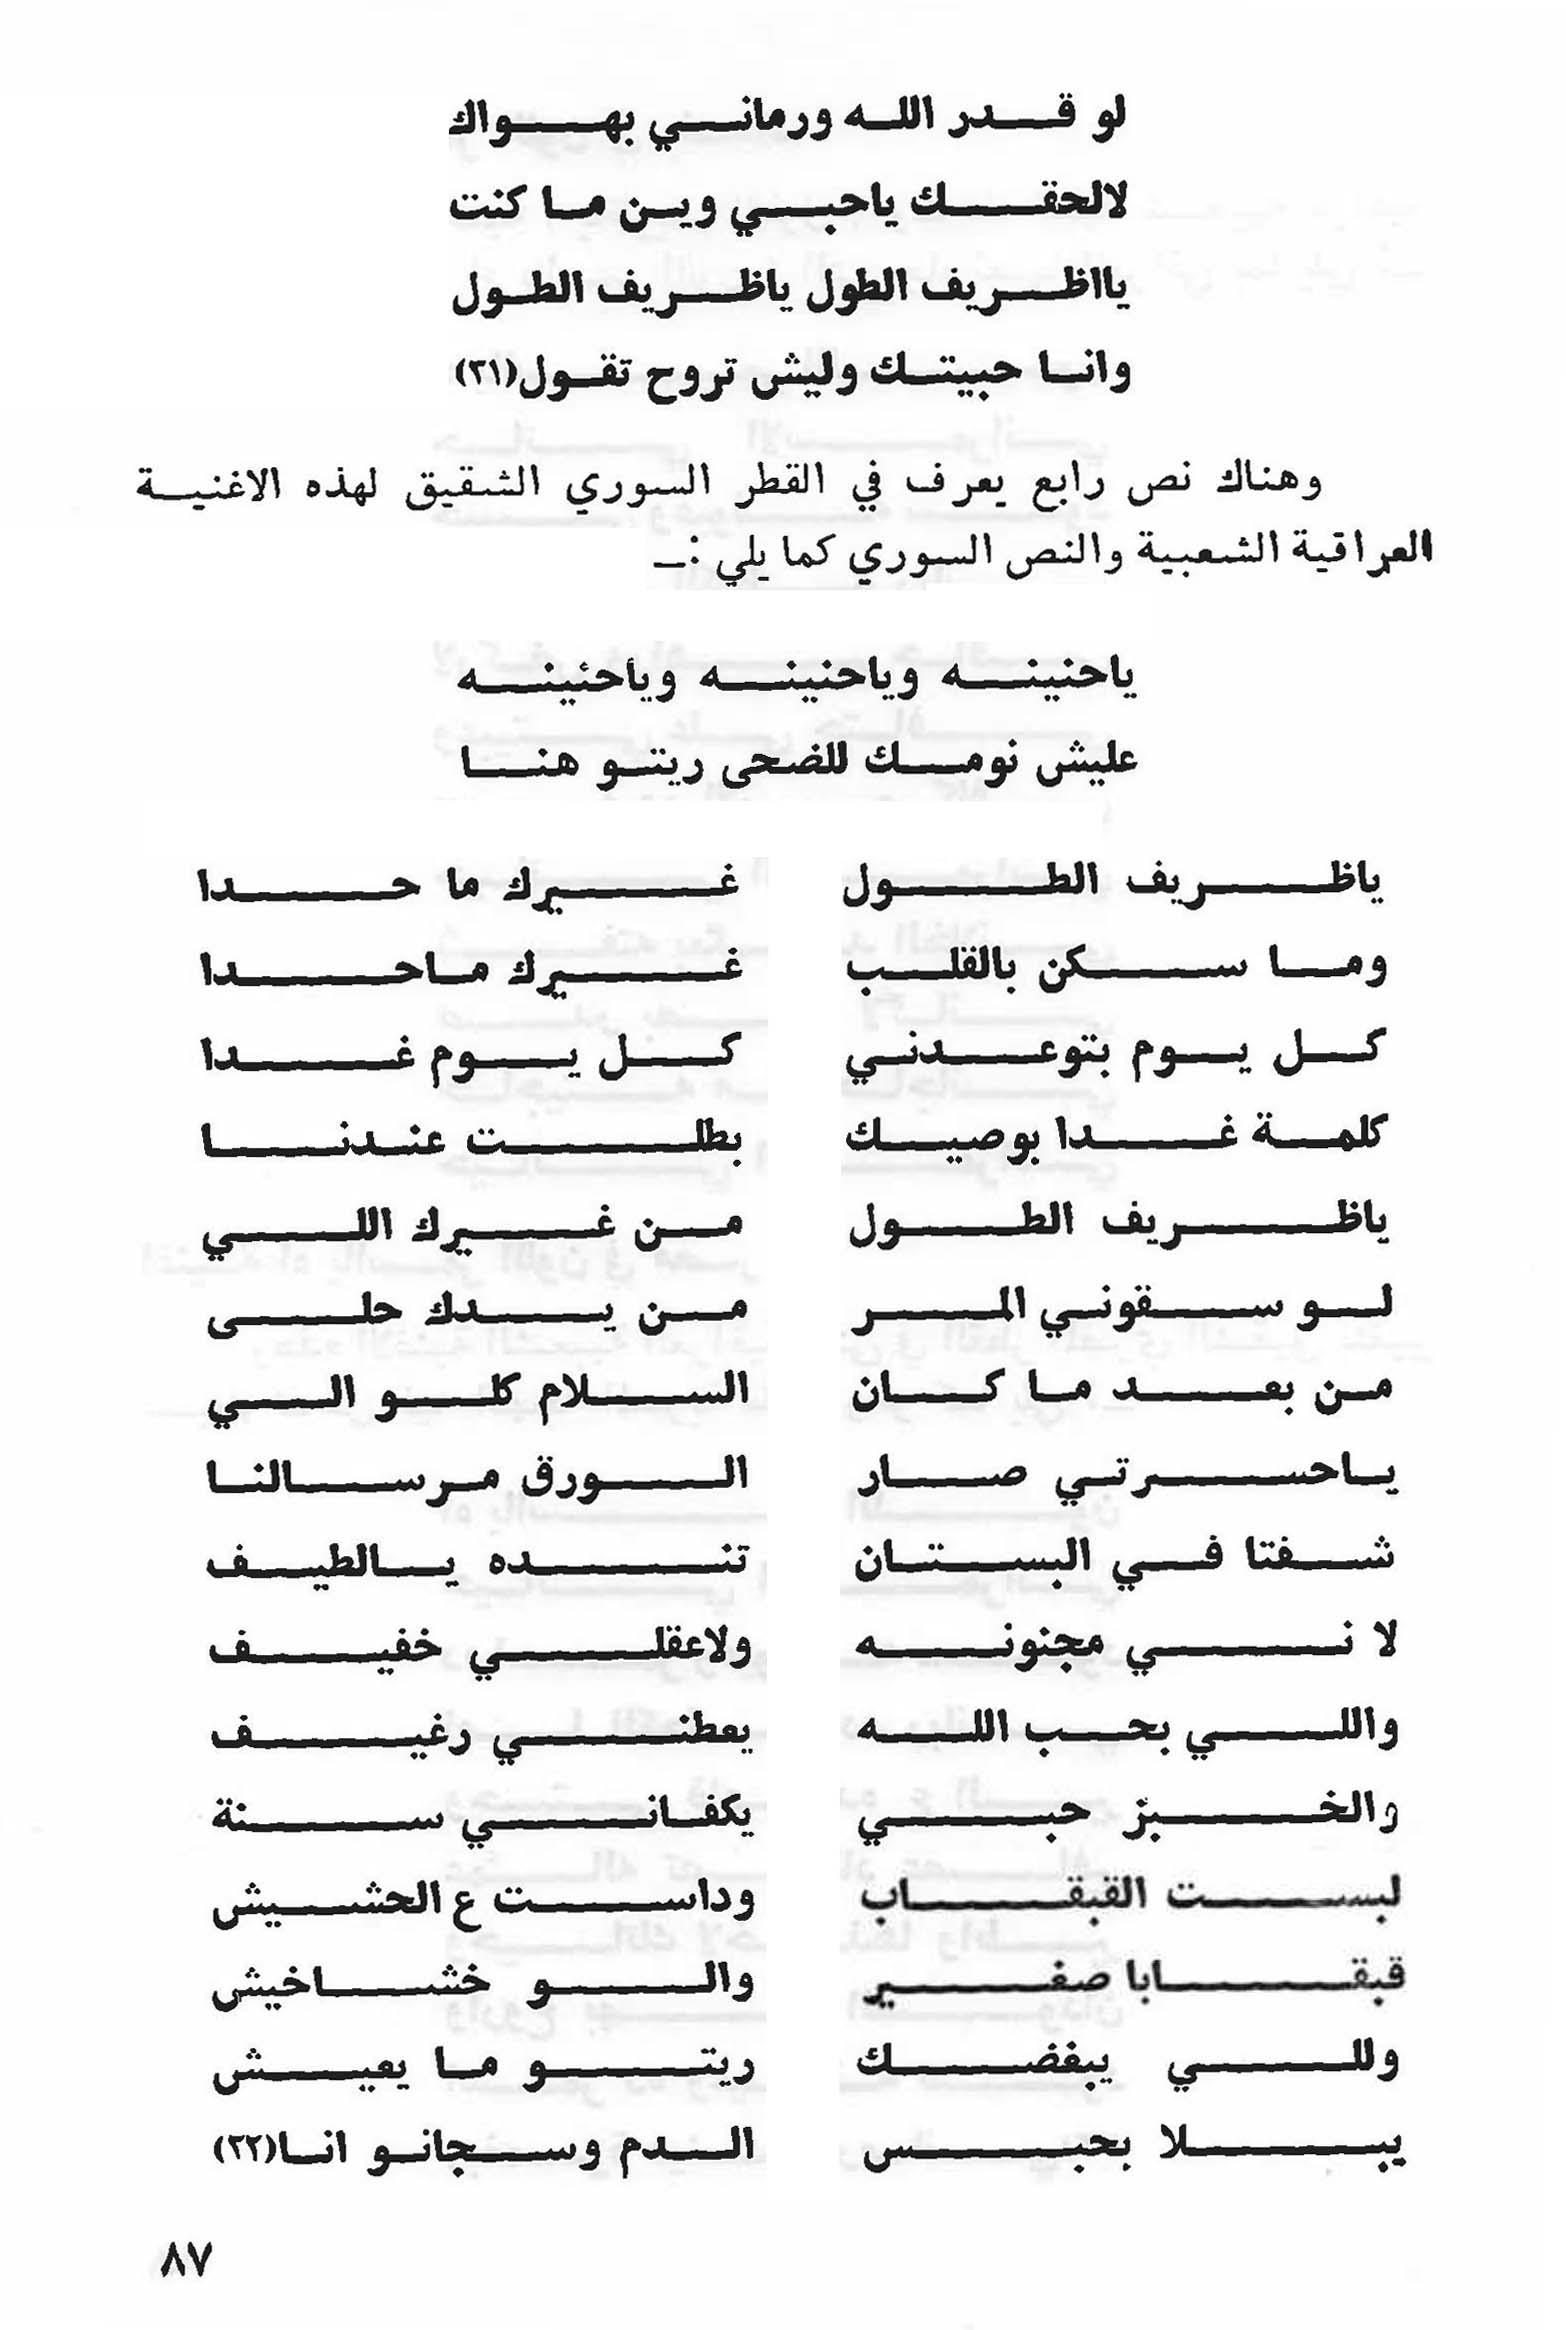 لو قدر الله ورماني بهواك
لالحقك ياحبي وين ما كنت
يااظريف الطول ياظريف الطول
وانا حبيتك وليش تروح تقول(٢١)
وهناك نص رابع يعرف في القطر السوري الشقيق لهذه الاغنية
العراقية الشعبية والنص السوري كما يلي :ـ
ياحنينه وياحنينه وياحنينه
عليش نومك للضحى ريتو هنا
ياظريف الطول غيرك ما حدا
وما سكن بالقلب غيرك ماحدا
كل يوم بتوعدني كل يوم غدا
كلمة غدا بوصيك بطلت عندنا
ياظريف الطول من غيرك اللي
لو سقوني المر من يدك حلى
من بعد ما كان السلام كلو الي
ياحسرتي صار الورق مرسالنا
شفتا في البستان تنده يالطيف
لا ني مجنونه ولاعقلي خفيف
واللي بحب الله يعطني رغيف
والخبز حبي يكفاني سنة
لبست القبقاب وداست ع الحشيش
قبقابا صغير والو خشاخيش
وللي يبغضك ريتو ما يعيش
يبلا بحبس الدم وسجانو انا(٢٢)
٨٧